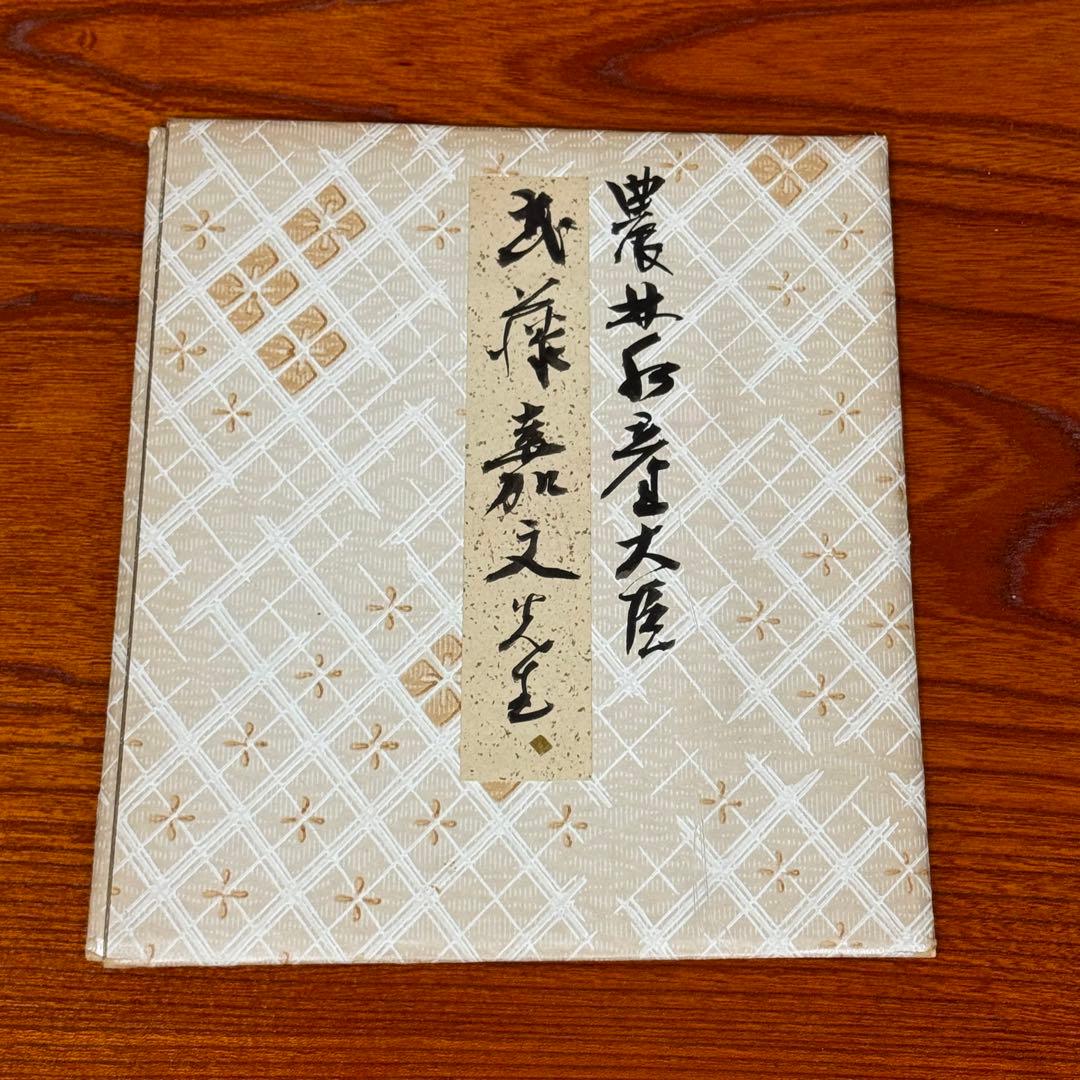 農林水産大臣
武藤嘉文先生